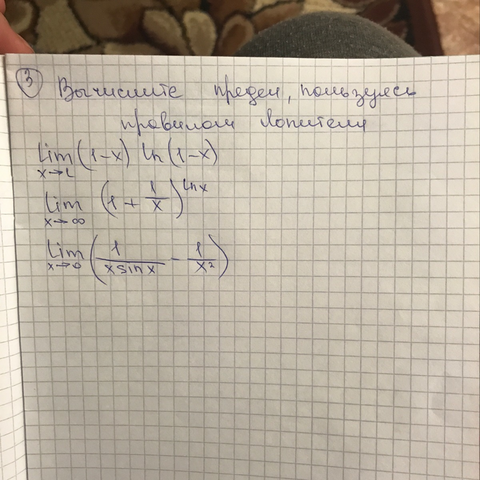 3 Вычислите предел, пользуясь
правилом Лопиталя
lim x→1 (1-x) ln(1-x)
lim x→∞ (1 + 1/x)^lnx
lim x→0 (1/(x sin x) - 1/x²)